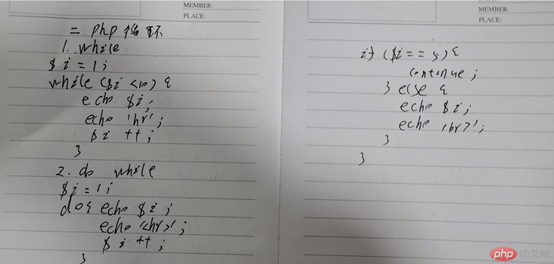 MEMBER:
PLACE:
二 php 循环
1. while
$i = 1;
while ($i <10) {
echo $i;
echo 'hr';
$i ++;
}
2. do while
$i = 1;
do { echo $i;
echo '<hr>';
$i ++;
}
MEMBER:
PLACE:
if ($i == 5) {
continue;
} else {
echo $i;
echo '<hr>';
}
}
php 中文网